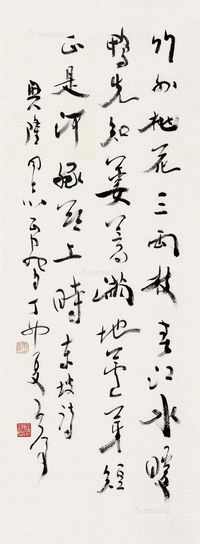 竹外桃花三两枝春江水暖
鸭先知蒌蒿满地芦芽短
正是河豚欲上时东坡诗
兴隆同志正之丁卯夏